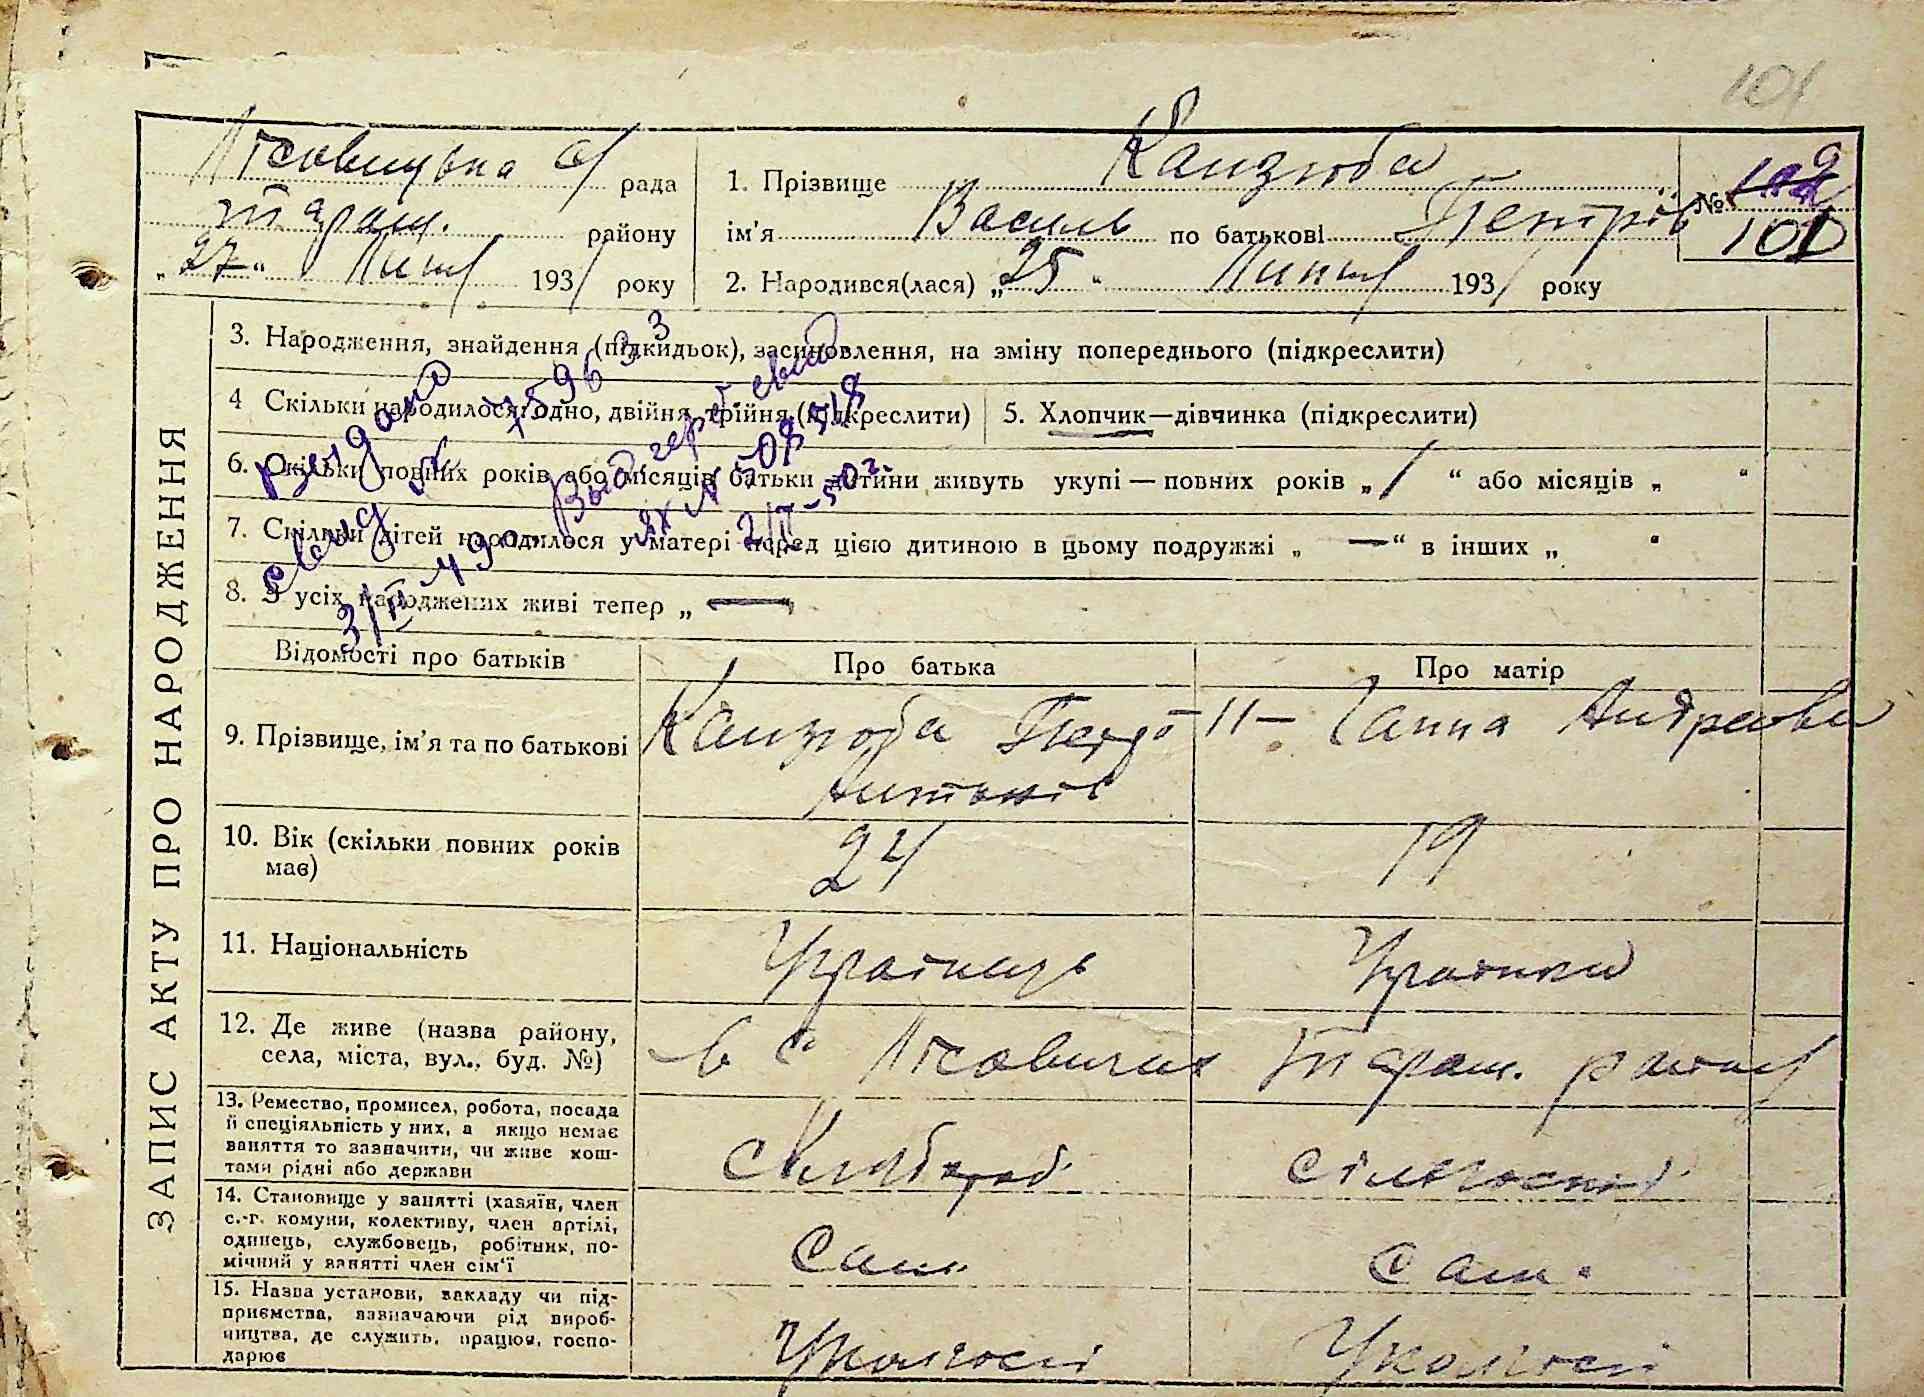 101
Лісовицька с/ рада
Таращ. району
„27“ Липця 1931 року
1. Прізвище Канзюба
ім'я Василь по батькові Петрів
№ 102
101
2. Народився(лася) „25“ Липця 1931 року
ЗАПИС АКТУ ПРО НАРОДЖЕННЯ
3. Народження, знайдення (підкидьок), засиновлення, на зміну попереднього (підкреслити)
4 Скільки народилося: одно, двійня, трійня (підкреслити)
5. Хлопчик—дівчинка (підкреслити)
6. Скільки повних років або місяців батьки дитини живуть укупі — повних років „1“ або місяців „ “
7. Скільки дітей народилося у матері перед цією дитиною в цьому подружжі „—“ в інших „ “
8. З усіх народжених живі тепер „—
свид
3/II 49 г.
№ 508518
2/II–50 г.
Відомості про батьків
Про батька
Про матір
9. Прізвище, ім'я та по батькові
Канзюба Петро
Антонів
–"– Ганна Андреева
10. Вік (скільки повних років
має)
24
19
11. Національність
Українець
Українка
12. Де живе (назва району,
села, міста, вул., буд. №)
в с. Лісовичах Таращ. району
13. Ремество, промисел, робота, посада
й спеціяльність у них, а якщо немає
заняття то зазначити, чи живе кош-
тами рідні або держави
Хлібороб
сільгосп
14. Становище у занятті (хазяїн, член
с.-г. комуни, колективу, член артілі,
одинець, службовець, робітник, по-
мічний у занятті член сім'ї
Сам.
Сам.
15. Назва установи, закладу чи під-
приємства, зазначаючи рід вироб-
ництва, де служить, працює, госпо-
дарює
У колгоспі
У колгоспі